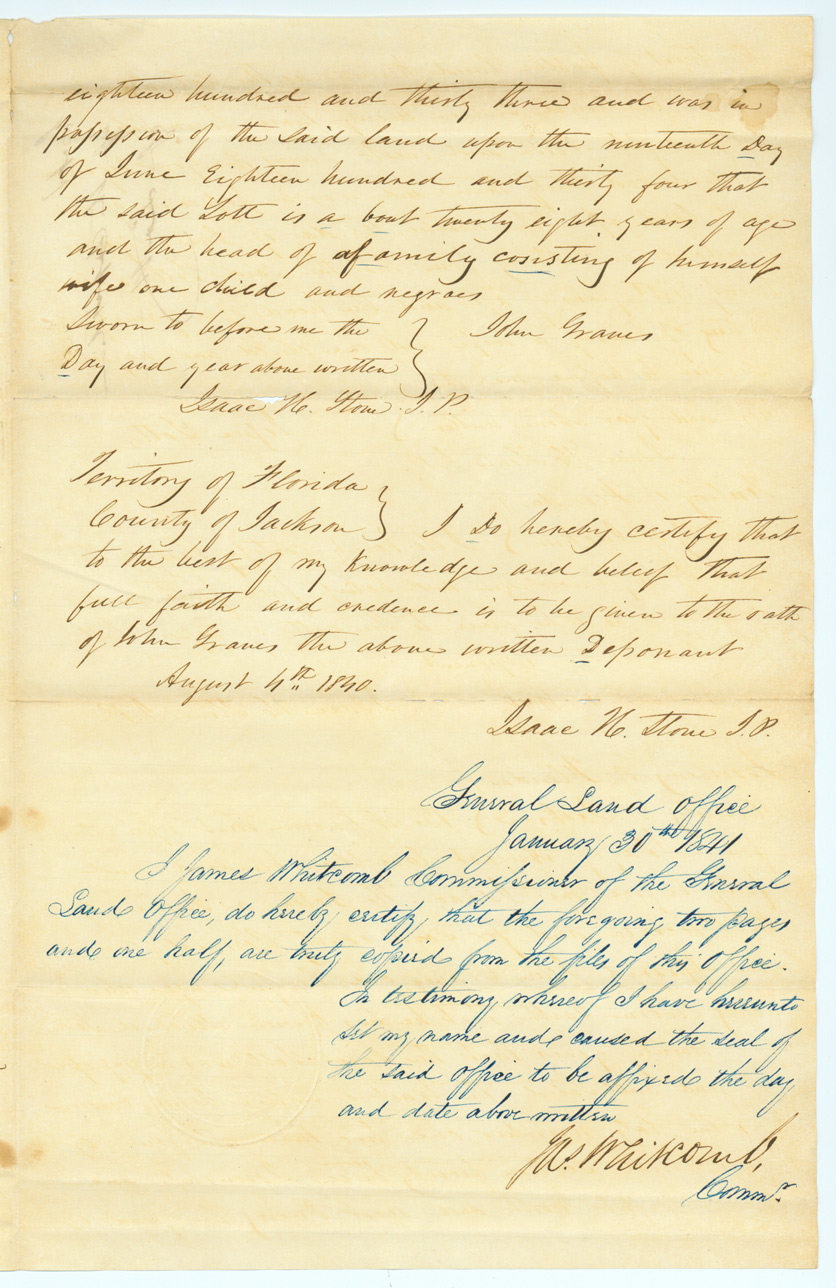 eighteen hundred and thirty three and was in
possession of the said land upon the ninteenth Day
of June Eighteen hundred and thirty four that
the said Lott is a bout twenty eight years of age
and the head of afamily cosisting of himself
wife one child and negroes
Sworn to before me the } John Graves
Day and year above written
Isaac H. Stone J. P.
Territory of Florida
County of Jackson } I Do hereby certify that
to the best of my Knowledge and belief that
full faith and credence is to be given to the oath
of John Graves the above written Deponant
August 4th 1840.
Isaac H. Stone J. P.
General Land Office
January 30th 1841
I James Whitcomb Commissioner of the General
Land Office, do hereby certify, that the foregoing two pages
and one half, are truly copied from the files of this Office.
In testimony whereof I have hereunto
set my name and caused the seal of
the said office to be affixed the day
and date above written
Jas. Whitcomb,
Commr.